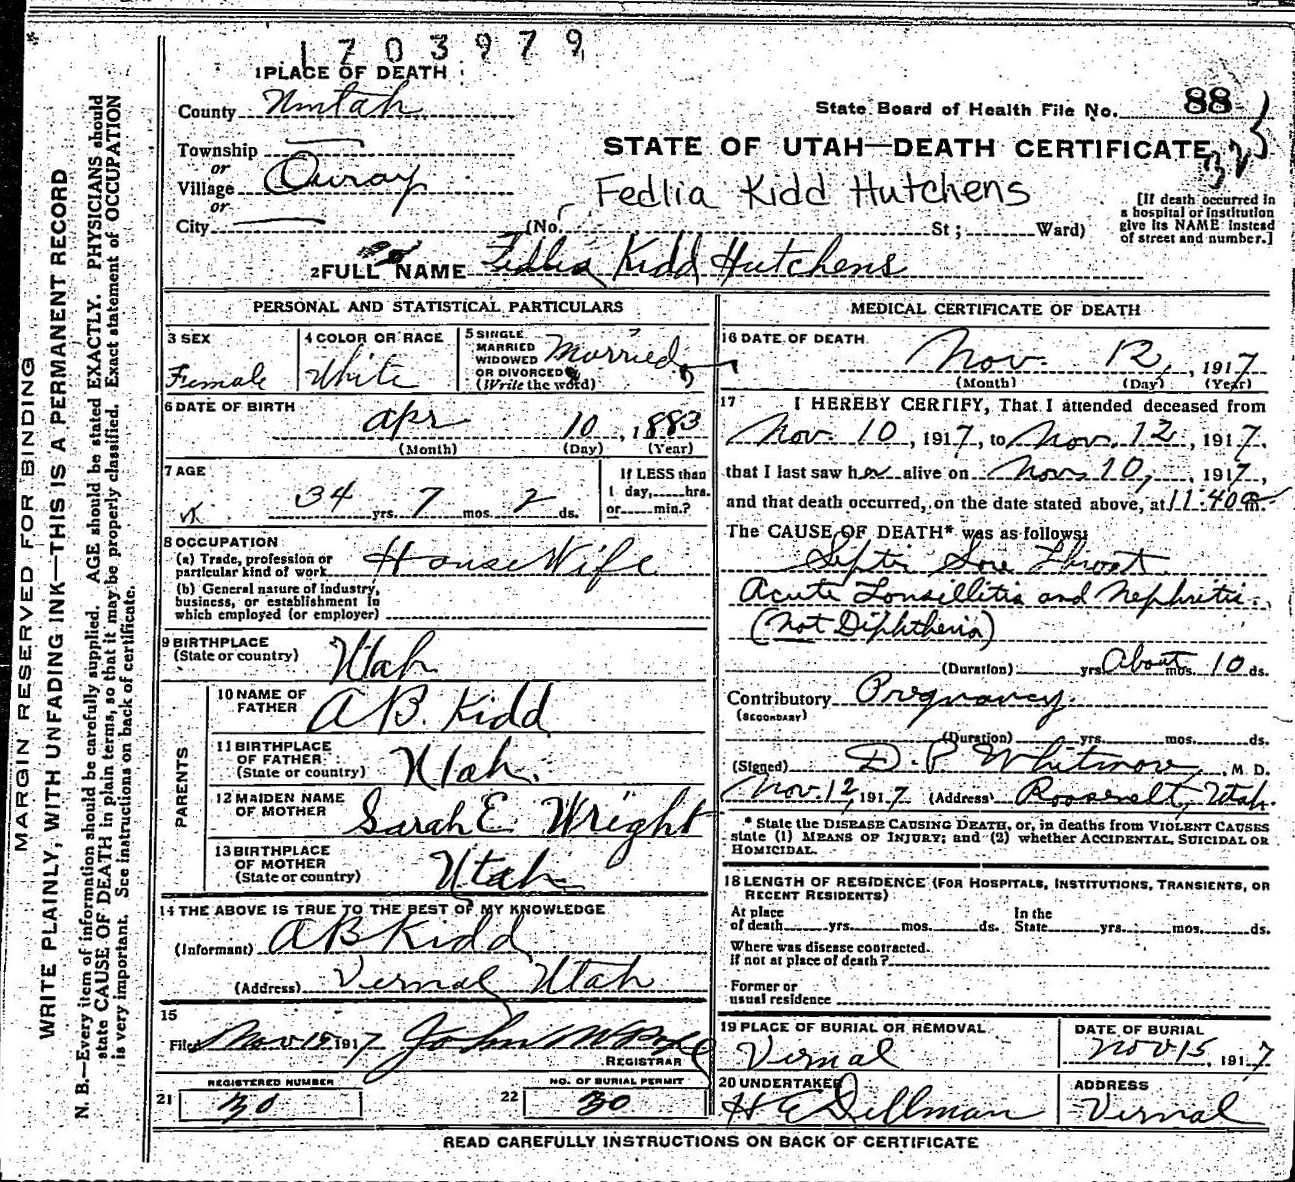 1703979
1 PLACE OF DEATH
County Uintah
State Board of Health File No. 88
Township
or
Village Ouray
or
City
STATE OF UTAH—DEATH CERTIFICATE
Fedlia Kidd Hutchens
(No. St; Ward)
[If death occurred in
a hospital or institution
give its NAME instead
of street and number.]
2 FULL NAME Fedlia Kidd Hutchens
PERSONAL AND STATISTICAL PARTICULARS
3 SEX
Female
4 COLOR OR RACE
White
5 SINGLE
MARRIED
WIDOWED
OR DIVORCED
(Write the word)
Married
6 DATE OF BIRTH
Apr 10, 1883
(Month) (Day) (Year)
7 AGE
34 yrs. 7 mos. 2 ds.
If LESS than
1 day, hrs.
or min.?
8 OCCUPATION
(a) Trade, profession or
particular kind of work House Wife
(b) General nature of industry,
business, or establishment in
which employed (or employer)
9 BIRTHPLACE
(State or country) Utah
PARENTS
10 NAME OF
FATHER A B. Kidd
11 BIRTHPLACE
OF FATHER
(State or country) Utah.
12 MAIDEN NAME
OF MOTHER Sarah E. Wright
13 BIRTHPLACE
OF MOTHER
(State or country) Utah
14 THE ABOVE IS TRUE TO THE BEST OF MY KNOWLEDGE
(Informant) A B Kidd
(Address) Vernal Utah
15
Filed Nov 1917 John
REGISTRAR
REGISTERED NUMBER
21 30
NO. OF BURIAL PERMIT
22 30
MEDICAL CERTIFICATE OF DEATH
16 DATE OF DEATH
Nov. 12, 1917
(Month) (Day) (Year)
17 I HEREBY CERTIFY, That I attended deceased from
Nov. 10, 1917, to Nov. 12, 1917,
that I last saw her alive on Nov. 10, 1917,
and that death occurred, on the date stated above, at 11:40 a m.
The CAUSE OF DEATH* was as follows:
Septic Sore Throat
Acute Tonsillitis and Nephritis.
(Not Diphtheria)
(Duration) yrs. About mos. 10 ds.
Contributory Pregnancy.
(SECONDARY)
(Duration) yrs. mos. ds.
(Signed) D. P. Whitmore, M. D.
Nov. 12, 1917 (Address) Roosevelt, Utah.
* State the DISEASE CAUSING DEATH, or, in deaths from VIOLENT CAUSES
state (1) MEANS OF INJURY; and (2) whether ACCIDENTAL, SUICIDAL OR
HOMICIDAL.
18 LENGTH OF RESIDENCE (FOR HOSPITALS, INSTITUTIONS, TRANSIENTS, OR
RECENT RESIDENTS)
At place
of death yrs. mos. ds.
In the
State yrs. mos. ds.
Where was disease contracted.
If not at place of death?
Former or
usual residence
19 PLACE OF BURIAL OR REMOVAL
Vernal
DATE OF BURIAL
Nov 15, 1917
20 UNDERTAKER
H E Dillman
ADDRESS
Vernal
READ CAREFULLY INSTRUCTIONS ON BACK OF CERTIFICATE
MARGIN RESERVED FOR BINDING
WRITE PLAINLY, WITH UNFADING INK—THIS IS A PERMANENT RECORD
N. B.—Every item of information should be carefully supplied. AGE should be stated EXACTLY. PHYSICIANS should
state CAUSE OF DEATH in plain terms, so that it may be properly classified. Exact statement of OCCUPATION
is very important. See instructions on back of certificate.